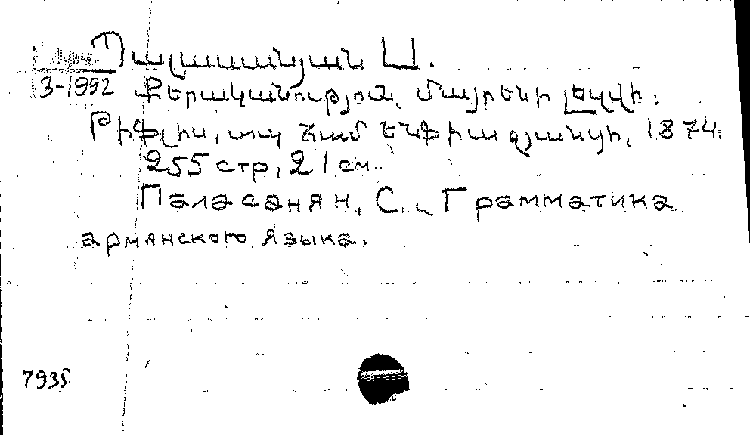 Պալասանյան Ս.
3-1992 Քերականություն մայրենի լեզվի.
Թիֆլիս, տպ. Համբ. Էնֆիաջյանցի, 1874.
255 стр, 21 см.
Паласанян, С. Грамматика
армянского языка.
7935